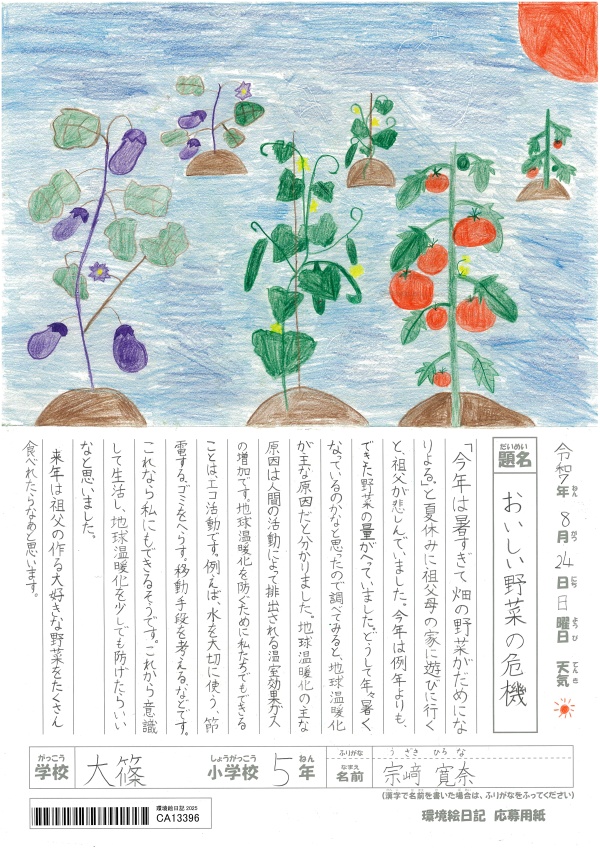 令和7年 8月 24日 日曜日 天気
ねん がつ にち ようび てんき
だいめい
題名 おいしい野菜の危機
「今年は暑すぎて、畑の野菜がだめにな
りよる。」と夏休みに祖父母の家に遊びに行く
と、祖父が悲しんでいました。今年は例年よりも、
できた野菜の量がへっていました。どうして年々暑く
なっているのかなと思ったので調べてみると、地球温暖化
が主な原因だと分かりました。地球温暖化の主な
原因は人間の活動によって排出される温室効果ガス
の増加です。地球温暖化を防ぐために私たちでもできる
ことはエコ活動です。例えば、水を大切に使う、節
電する。ゴミをへらす。移動手段を考える。などです。
これなら私にもできるそうです。これから意識
して生活し、地球温暖化を少しでも防げたらいい
なと思いました。
来年は祖父の作る大好きな野菜をたくさん
食べれたらなぁと思います。
がっこう しょうがっこう ねん ふりがな うざき ひろな
学校 大篠 小学校 5年 なまえ 名前 宗﨑 寛奈
(漢字で名前を書いた場合は、ふりがなをふってください)
環境絵日記 2025
CA13396
環境絵日記 応募用紙